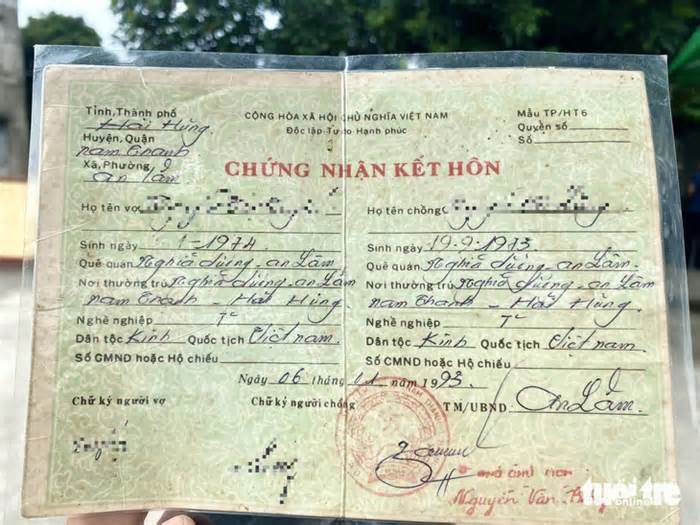 Tỉnh, Thành phố
Hải Hưng
Huyện, Quận
Nam Thanh
Xã, Phường
An Lâm
CỘNG HÒA XÃ HỘI CHỦ NGHĨA VIỆT NAM
Độc lập - Tự do - Hạnh phúc
Mẫu TP/HT6
Quyển số
Số
CHỨNG NHẬN KẾT HÔN
Họ tên vợ
Sinh ngày 1-1974
Quê quán Nghĩa dũng - An Lâm
Nơi thường trú Nghĩa dũng - an Lâm
nam Thanh - Hải Hưng
Nghề nghiệp
Dân tộc Kinh Quốc tịch Việt nam
Số CMND hoặc Hộ chiếu
Họ tên chồng
Sinh ngày 19-9-1973
Quê quán Nghĩa dũng - an Lâm
Nơi thường trú Nghĩa dũng - an Lâm
nam Thanh - Hải Hưng
Nghề nghiệp
Dân tộc Kinh Quốc tịch Việt nam
Số CMND hoặc Hộ chiếu
Ngày 06 tháng 01 năm 1993
Chữ ký người vợ
Chữ ký người chồng
TM/UBND An Lâm
Nguyễn Văn
tuổi trẻ
online